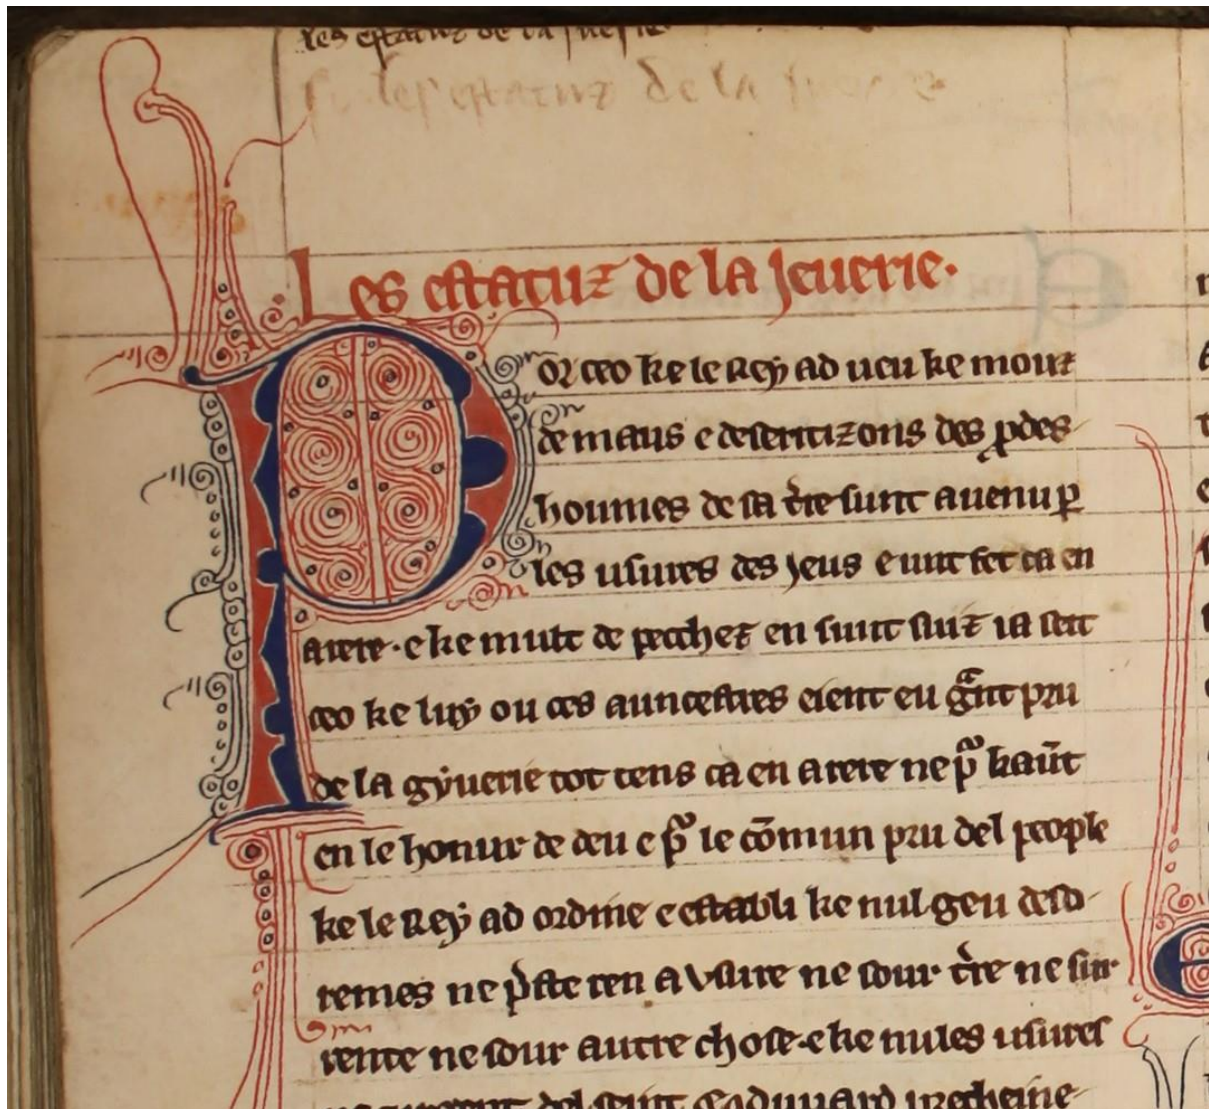 les estatuz de la juerie
les estatuz de la juerie
Les estatuz de la Jeuerie.
Por ceo ke le Rey ad ueu ke mouz
de maus e deseritizons des pdes
houmes de sa tre sunt auenu p
les usures des Jeus e unt fet ca en
arere . e ke mult de pecchez en sunt siuz ia seit
ceo ke luy ou ces auncestres eient eu gnt pru
de la gyuerie tot tens ca en arere ne p kaut
en le honur de deu e p le comun pru del people
ke le Rey ad ordine e establi ke nul geu deso
remes ne pste ren a vsure ne sour tre ne sur
rente ne sour autre chose . e ke nules usures
del seint Edduuard procheine